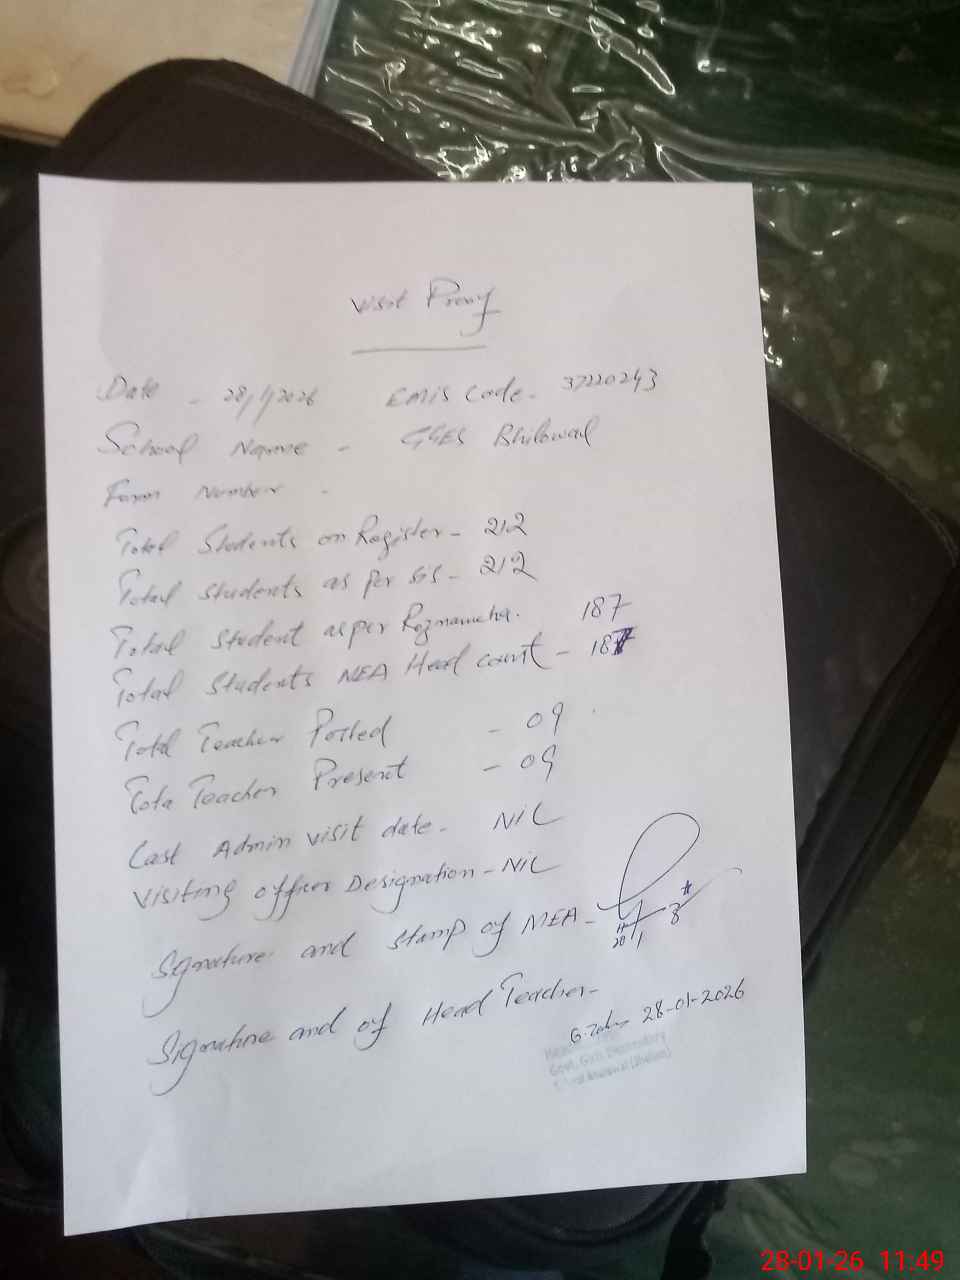 Visit Proof
Date - 28/1/2026 EMIS Code - 37220243
School Name - GGES Bhilowal
Form Number -
Total Students on Register - 212
Total Students as per SIS - 212
Total Student as per Roznamcha. 187
Total Students MEA Head count - 187
Total Teacher Posted - 09
Tota Teacher Present - 09
Last Admin visit date - NIL
Visiting officer Designation - NIL
Signature and stamp of MEA -
Signature and of Head Teacher -
28-01-2026
Govt. Girls Elementary
28-01-26 11:49